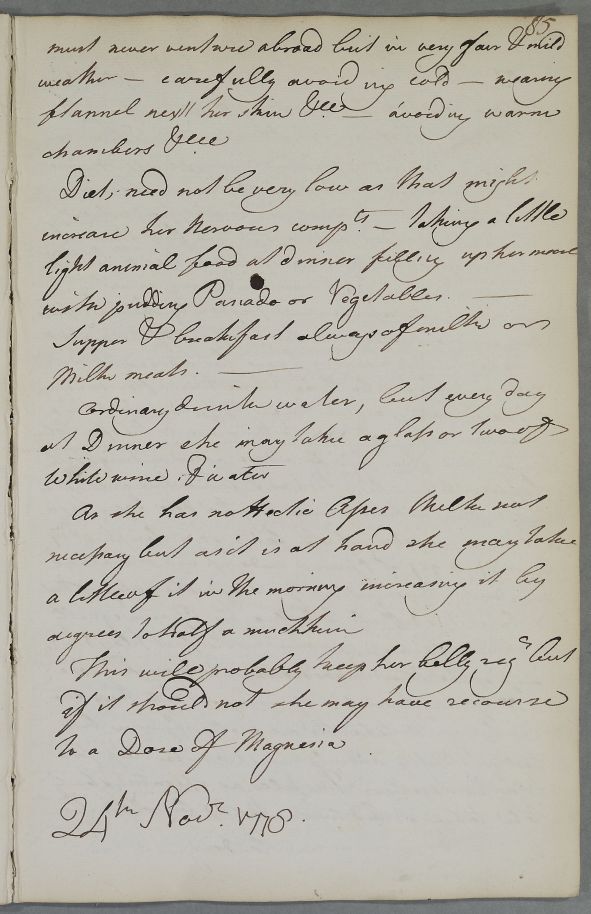 85
must never venture abroad but in very fair & mild
weather — carefully avoiding cold — wearing
flannel next her skin &ca — avoiding warm
chambers &ca
Diet, need not be very low as that might
increase her Nervous compts. — taking a little
light animal food at dinner filling up her meal
with pudding Panado or Vegetables. —
Supper & breakfast always of milk or
Milk meats. —
Ordinary drink water, but every day
at Dinner she may take a glass or two of
White wine & water
As she has no Hectic Asses Milk not
necessary but as it is at hand she may take
a little of it in the morning increasing it by
degrees to half a mutchkin
This will probably keep her belly regr. but
if it should not she may have recourse
to a Dose of Magnesia
24th Novr. 1778.